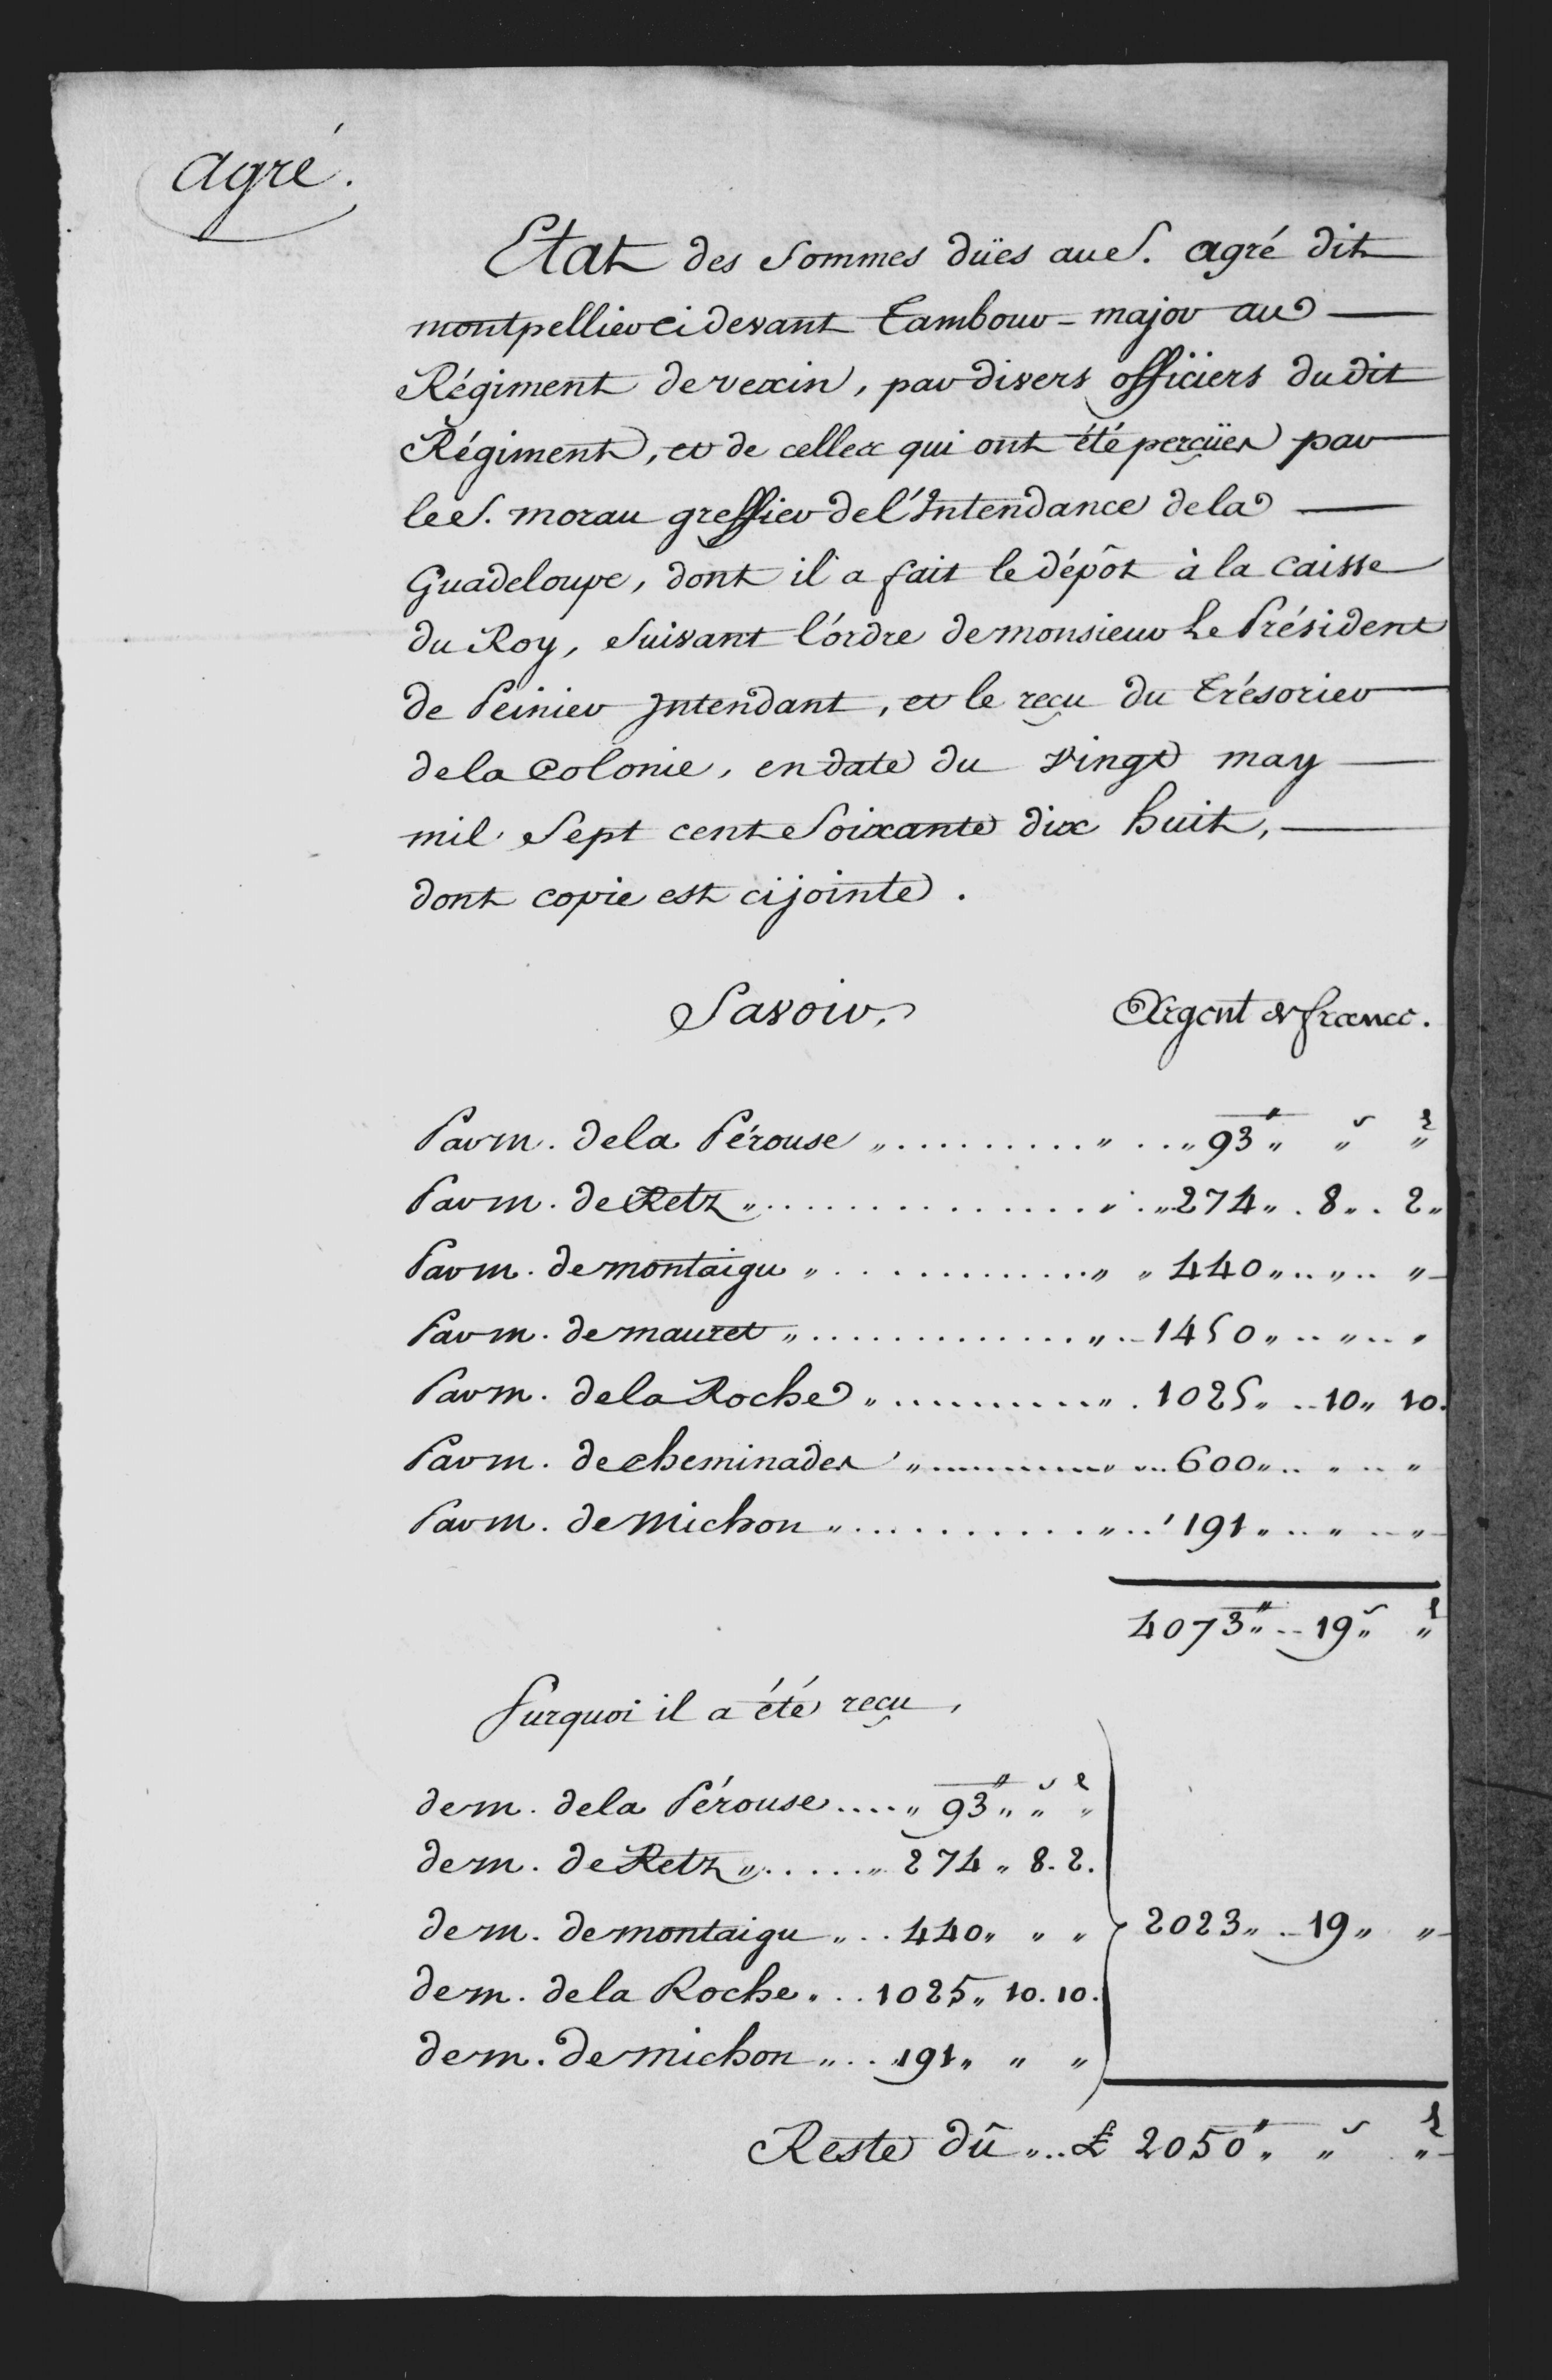 agré.
Etat des Sommes dües au S. agré dit
montpellier ci devant Tambour-major au
Régiment de vexin, par divers officiers du dit
Régiment, et de celles qui ont été perçües par
le S. morau greffier de l'Intendance de la
Guadeloupe, dont il a fait le dépôt à la Caisse
du Roy, Suivant l'ordre de monsieur Le Président
de Peinier Intendant, et le reçu du Trésorier
de la Colonie, en date du vingt may
mil Sept cent Soixante dix huit,
dont copie est cijointe.
Savoir, Argent de france.
Par m. de la Pérouse „ .......... „ ... „ 93 „ „ „
Par m. de Retz „ .......... „ . „ 274 „ . 8 „ . 2 „
Par m. de montaigu „ .......... „ „ 440 „ .. „ .. „
Par m. de mauret „ .......... „ .. 1450 „ .. „ .. „
Par m. de la Roche „ .......... „ . 1025 „ .. 10 „ 10.
Par m. de cheminades „ .......... „ ... 600 „ .. „ .. „
Par m. de Michon „ .......... „ .. 191 „ .. „ .. „
4073 „ .. 19 „ „
Surquoi il a été reçu,
de m. de la Pérouse .... „ 93 „ „ „
de m. de Retz „ ..... „ 274 „ 8. 2.
de m. de montaigu „ .. 440 „ „ „ 2023 „ .. 19 „ „
de m. de la Roche . .. 1025 „ 10. 10.
de m. de michon „ .. 191 „ „ „
Reste dû „ .. £ 2050 „ „ „